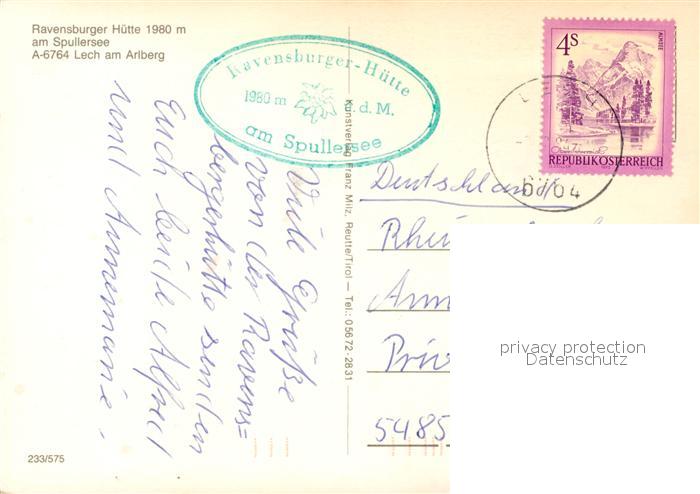 Ravensburger Hütte 1980 m
am Spullersee
A-6764 Lech am Arlberg
Ravensburger-Hütte
1980 m ü.d.M.
am Spullersee
4S
ALMSEE
REPUBLIK ÖSTERREICH
Viele Grüße
von der Ravens=
bergerhütte senden
Euch beide Alfred
und Annemarie.
Kunstverlag Franz Milz, Reutte/Tirol – Tel.: 05672-2831
Deutschland
5485
privacy protection
Datenschutz
233/575